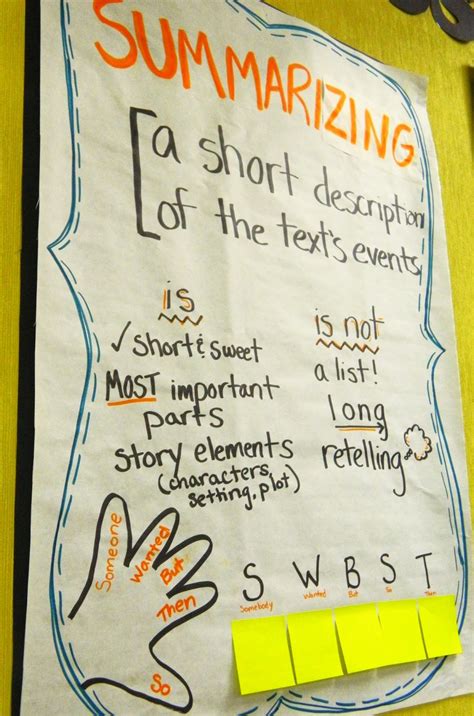 SUMMARIZING
a short description
of the text's events
is
✓ short & sweet
MOST important
parts
story elements
(characters,
setting, plot)
is not
a list!
long
retelling
Someone
Wanted
But
Then
So
S W B S T
Somebody Wanted But So Then